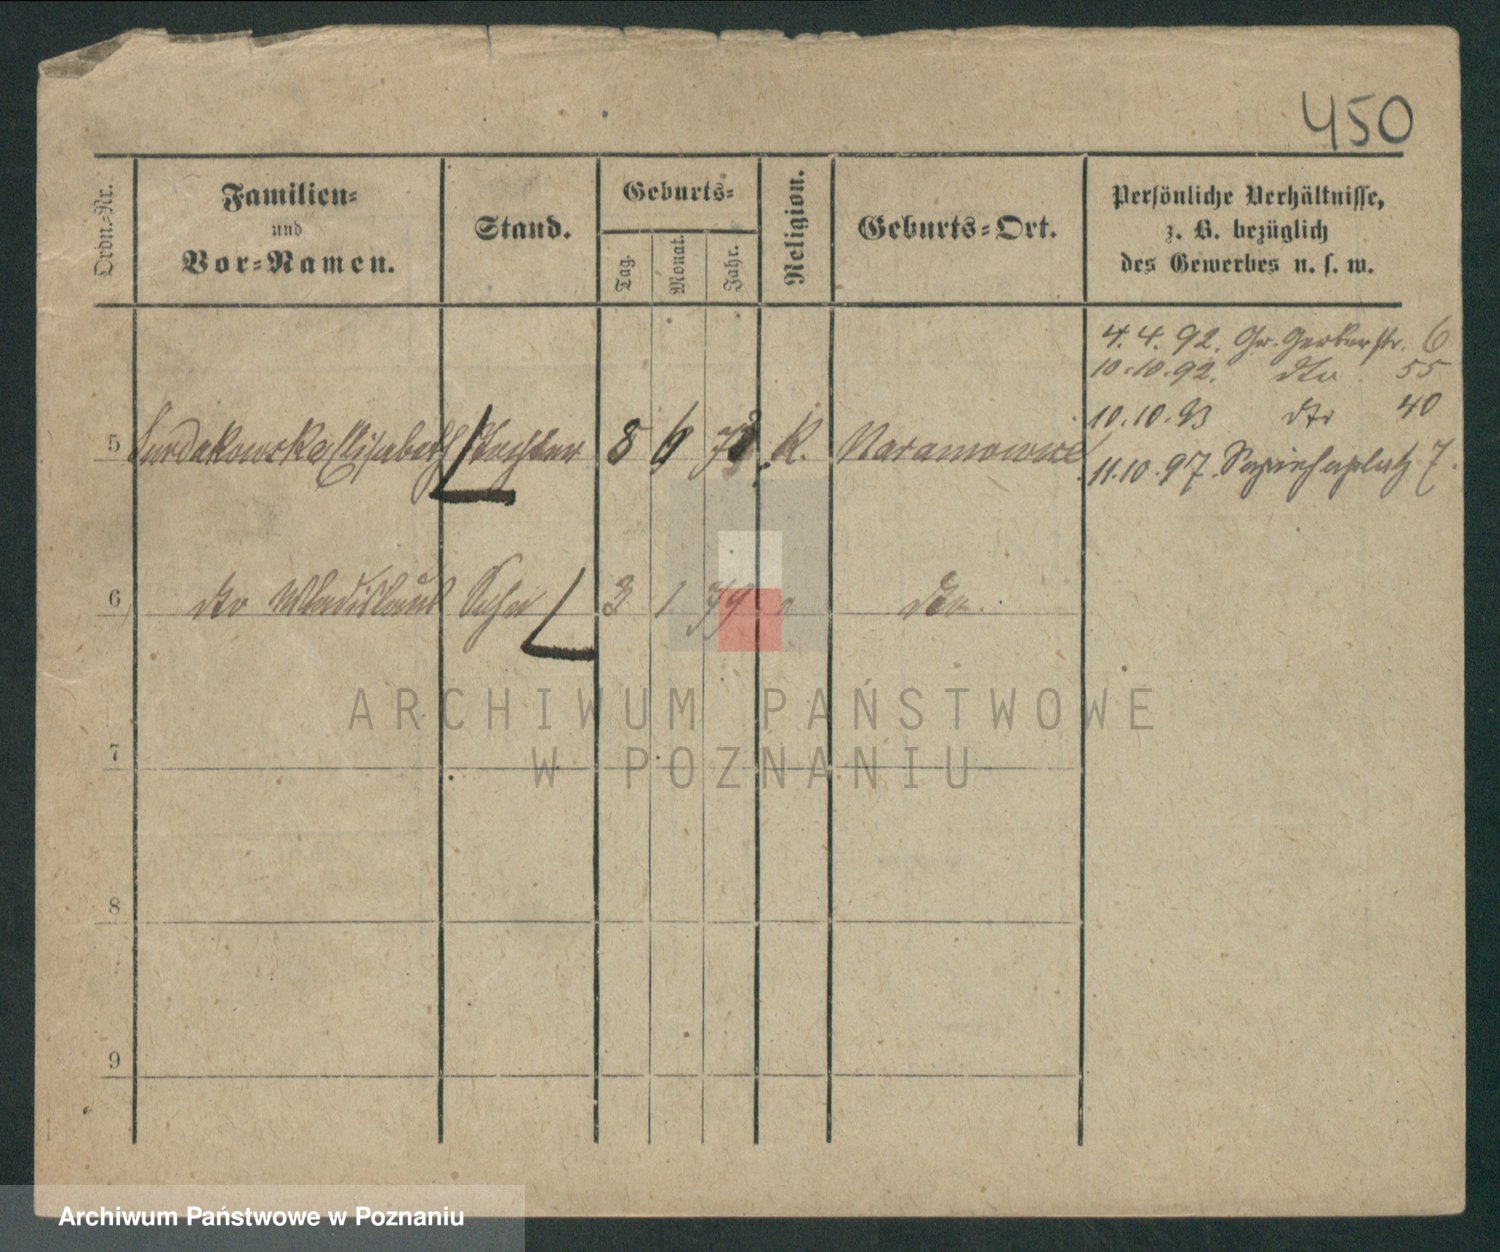 450
Ordn.-Nr.
Familien-
und
Vor-Namen.
Stand.
Geburts-
Tag.
Monat.
Jahr.
Religion.
Geburts-Ort.
Persönliche Verhältnisse,
z. B. bezüglich
des Gewerbes u. s. w.
4. 4. 92. Gr. Gerberstr. 6
10.10.92. dto 55
10.10.93 dto 40
11.10.97. Sapiehaplatz 7.
5 Elisabeth Tochter 8 6 K. Naramowice
6 dto Wladislaus Sohn 3 1 79 dto.
7
8
9
ARCHIWUM PAŃSTWOWE
W POZNANIU
Archiwum Państwowe w Poznaniu